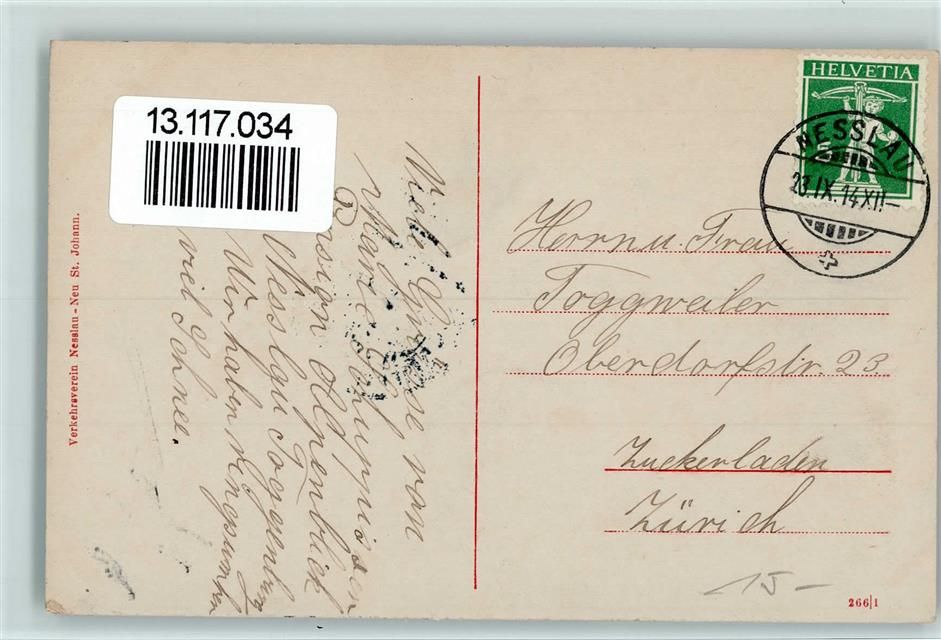 13.117.034
HELVETIA
NESSLAU
23.IX.14 XII–
Verkehrsverein Nesslau - Neu St. Johann.
Viele Grüsse von
Marie Schuppisser
Pension Alpenblick
Nesslau Toggenburg
Wir haben ringsumher
viel Schnee.
Herrn u. Frau
Toggweiler
Oberdorfstr. 23
Zuckerladen
Zürich
15–
266|1